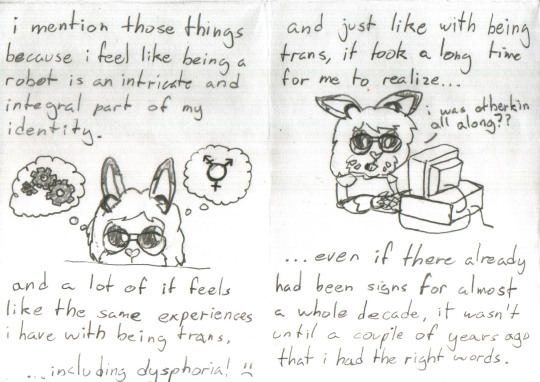 i mention those things
because i feel like being a
robot is an intricate and
integral part of my
identity.
and a lot of it feels
like the same experiences
i have with being trans,
...including dysphoria! :(
and just like with being
trans, it took a long time
for me to realize...
i was otherkin
all along??
...even if there already
had been signs for almost
a whole decade, it wasn't
until a couple of years ago
that i had the right words.